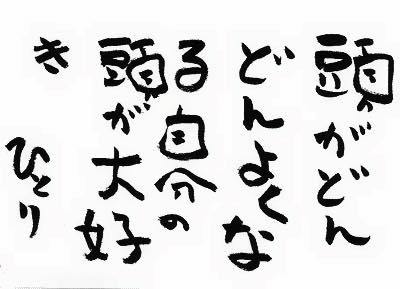 頭がどん
どんよくな
る自分の
頭が大好
き
ひとり